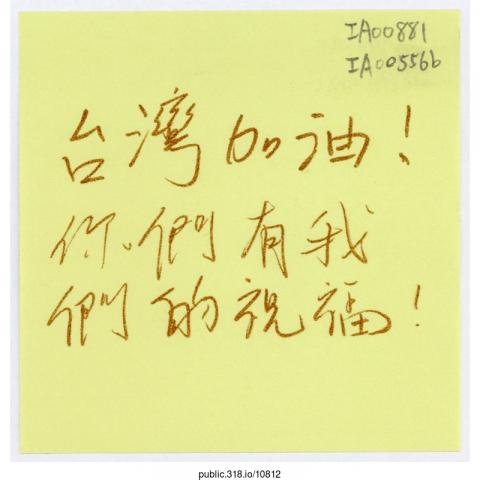 IA00881
IA00556b
台灣加油!
你們有我
們的祝福!
public.318.io/10812